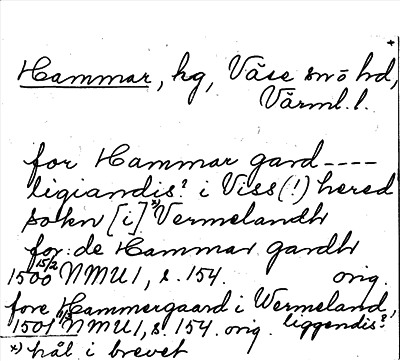 Hammar, hg, Väse snö hd,
Värml. l.
for Hammar gard ----
ligiandis? i Viss(!) hered
sokn [i]*) Vermelandh
for de Hammar gardh
15/2 1500 NMU1, s. 154. orig.
fore Hammergaard i Wermeland,
1501 NMU1, s. 154. orig. liggendis?
*) hål i brevet